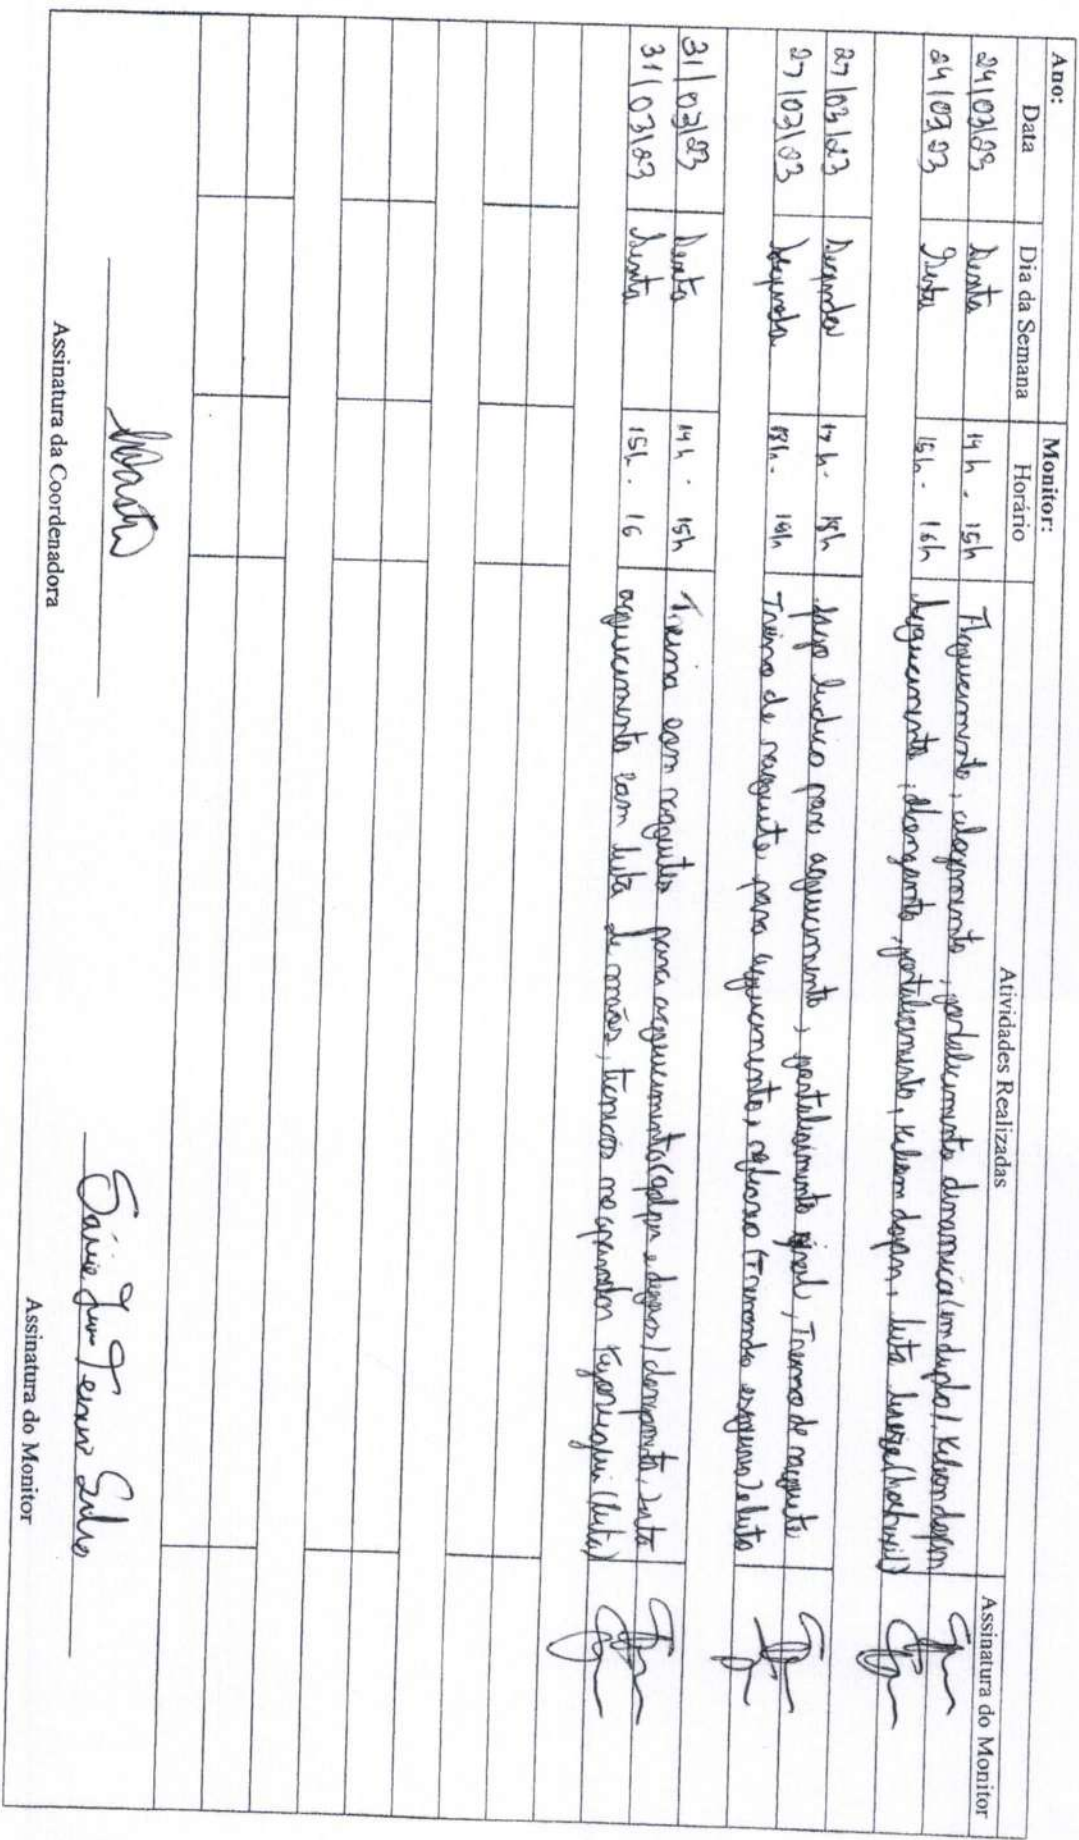 Ano:
Monitor:
Data Dia da Semana Horário Atividades Realizadas Assinatura do Monitor
24/03/23 Sexta 14h - 15h Aquecimento, alongamento, fortalecimento dinamico (em dupla),
24/03/23 Sexta 15h - 16h Aquecimento, fortalecimento, luta
27/03/23 Segunda 17h - 18h Jogo ludico para aquecimento, fortalecimento geral, Treino de raquete
27/03/23 Segunda 18h - 19h Treino de raquete para aquecimento, reflexo (Treinando esquiva) e luta
31/03/23 Sexta 14h - 15h Treino com raquetes para aquecimento (golpes e defesas), luta
31/03/23 Sexta 15h - 16 aquecimento com luta de mãos, tecnicas (luta)
Assinatura da Coordenadora
Silva
Assinatura do Monitor